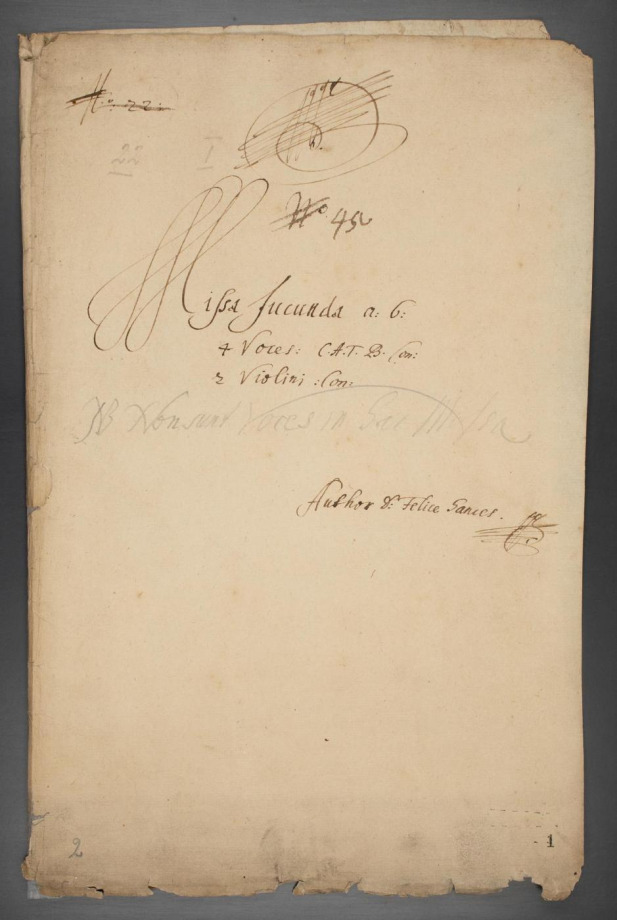 No. 22
22 I
No 45
Missa Jucunda a: 6:
4 Voces: C.A.T.B. Con:
2 Violini :Con:
NB Nonsunt Voces in hac Missa
Author D: Felice Sances.
2
1